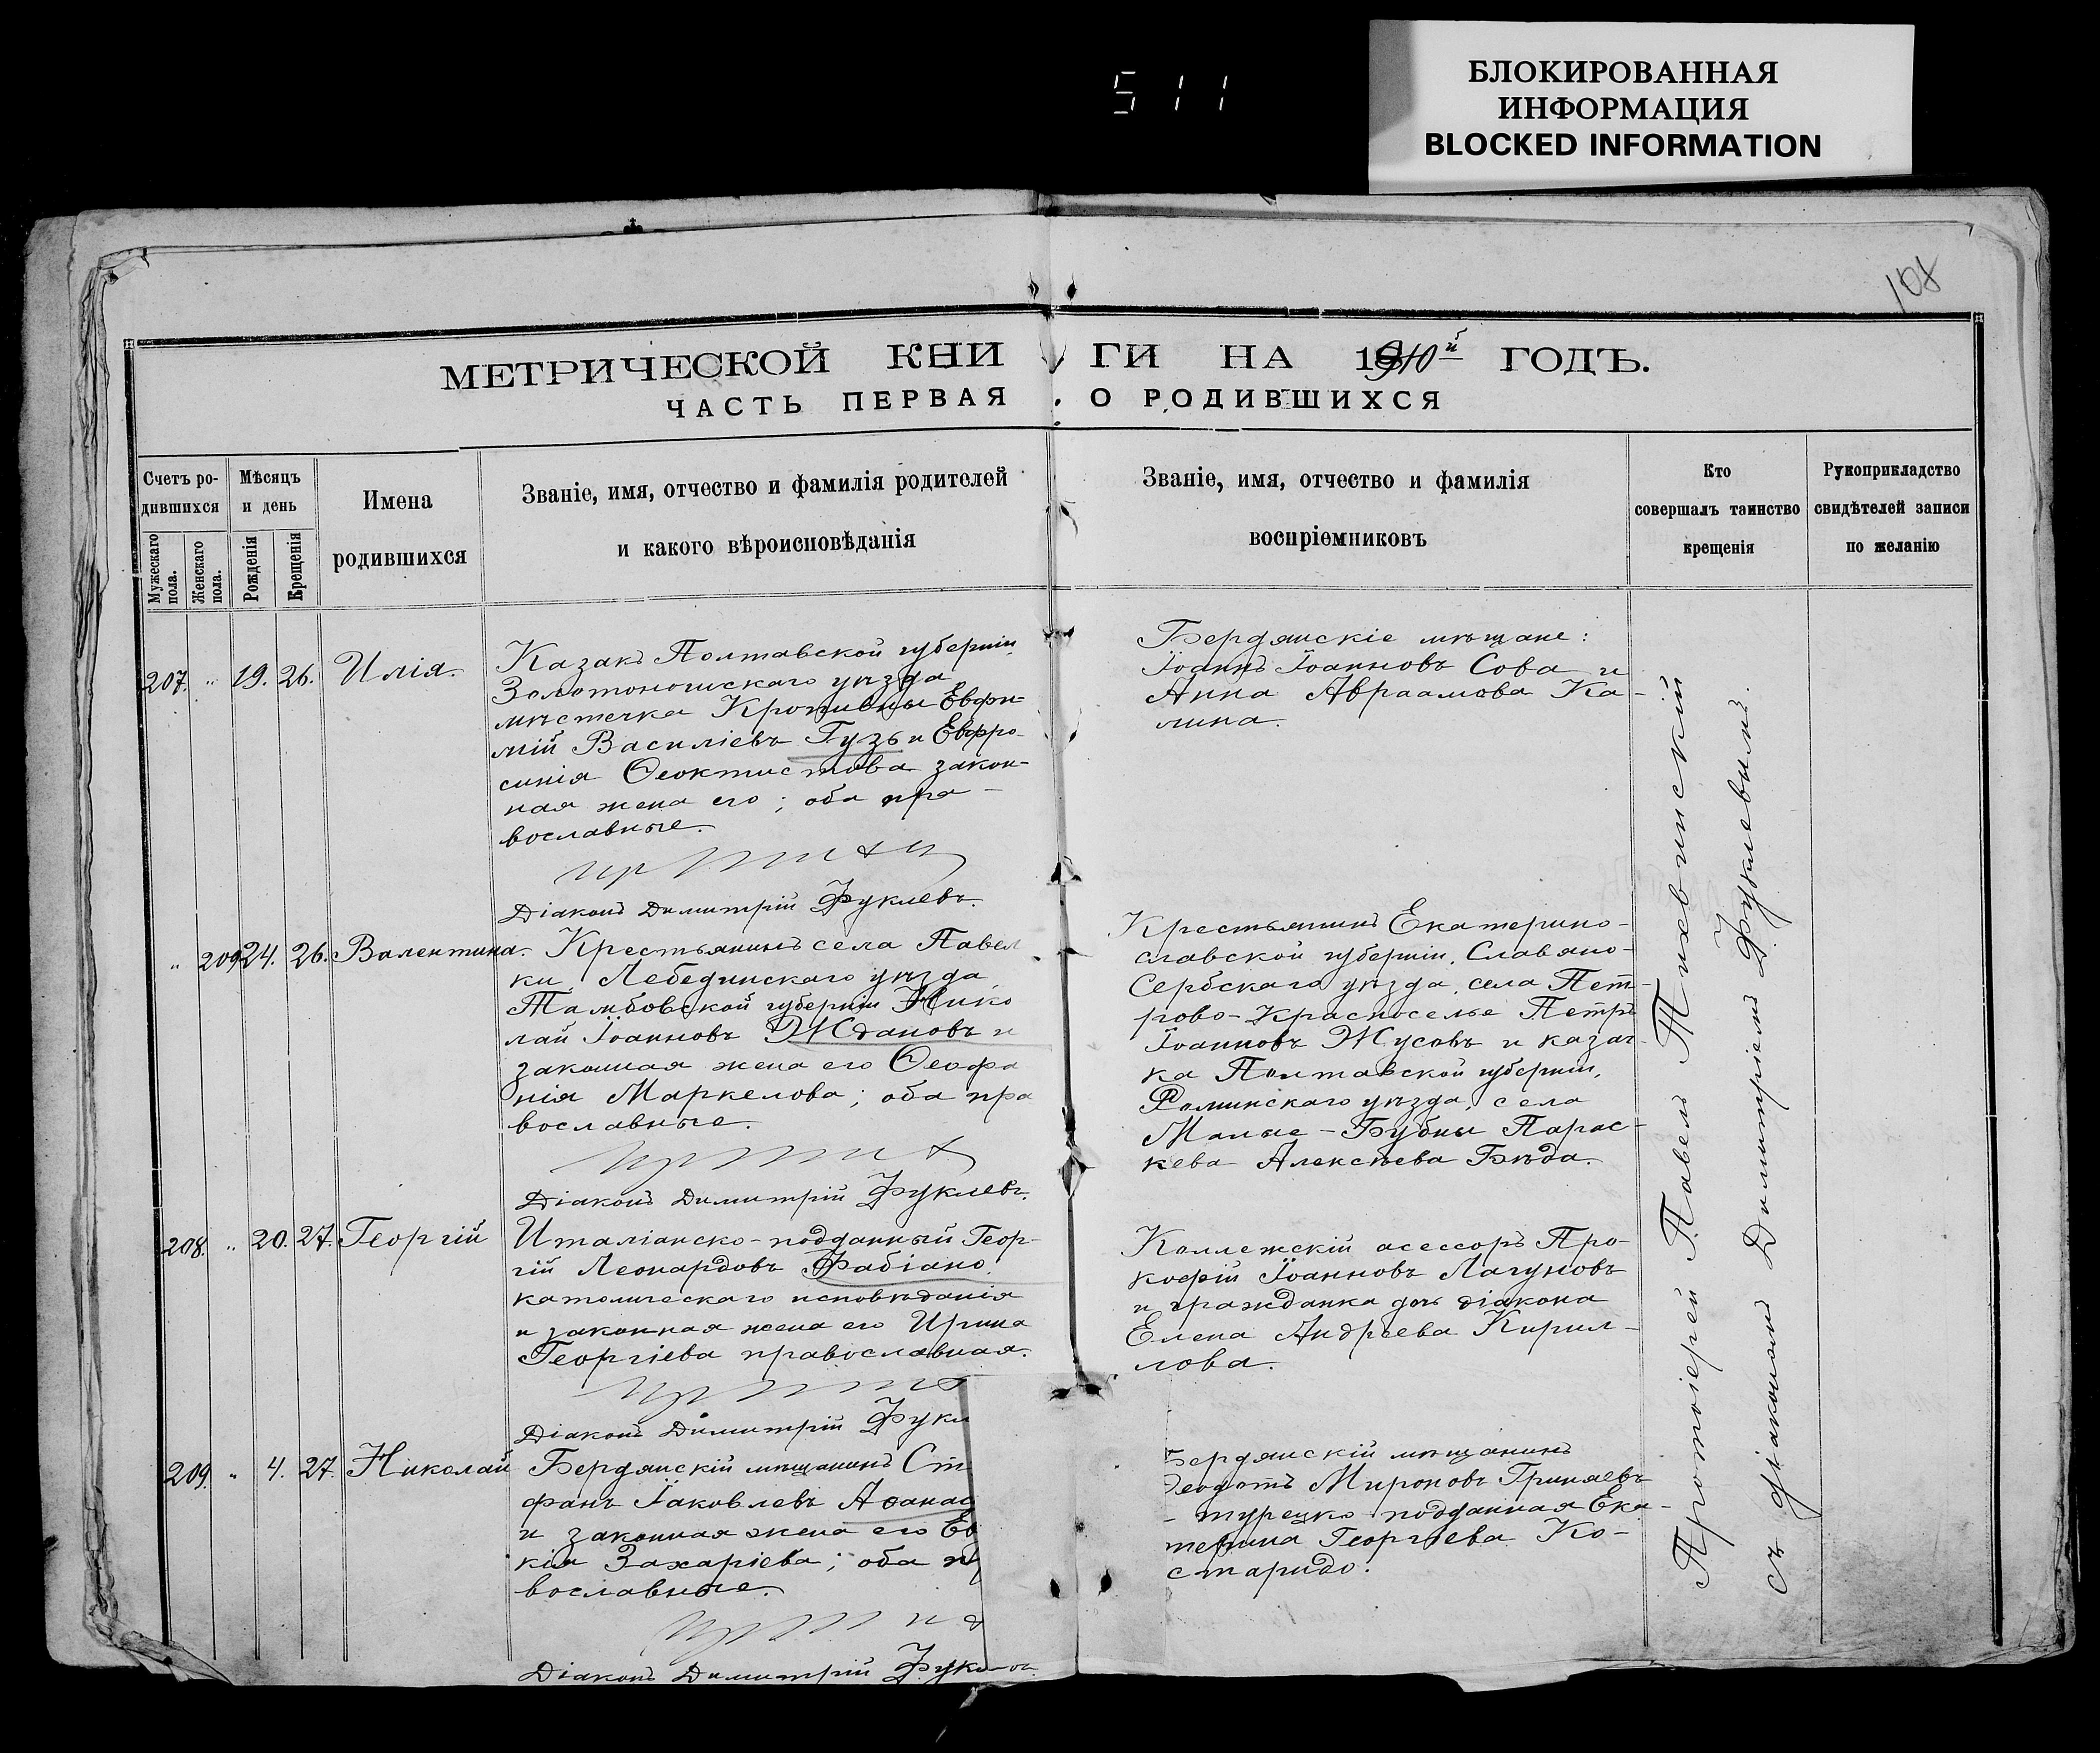 511
БЛОКИРОВАННАЯ
ИНФОРМАЦИЯ
BLOCKED INFORMATION
108
МЕТРИЧЕСКОЙ КНИГИ НА 1910й ГОДЪ.
ЧАСТЬ ПЕРВАЯ. О РОДИВШИХСЯ
Счетъ ро-
дившихся
Мужескаго пола.
Женскаго пола.
Мѣсяцъ
и день
Рожденія
Крещенія
Имена
родившихся
Званіе, имя, отчество и фамилія родителей
и какого вѣроисповѣданія
Званіе, имя, отчество и фамилія
воспріемниковъ
Кто
совершалъ таинство
крещенія
Рукоприкладство
свидѣтелей записи
по желанію
207. " 19. 26. Илія.
Казакъ Полтавской губерніи
Золотоношскаго уѣзда
мѣстечка Кропивны Евфи-
мій Василіевъ Гузь и Евфро-
синія Ѳеоктистова закон-
ная жена его; оба пра-
вославные.
Діаконъ Димитрій Фуклевъ.
Бердянскіе мѣщане:
Іоаннъ Іоанновъ Сова и
Анна Авраамова Ка-
лина.
" 209 24. 26. Валентина.
Крестьянинъ села Павел
ки, Лебедянскаго уѣзда
Тамбовской губерніи Нико
лай Іоанновъ Ждановъ и
законная жена его Ѳеофа
нія Маркелова; оба пра
вославные.
Діаконъ Димитрій Фуклевъ.
Крестьянинъ Екатерино-
славской губерніи, Славяно-
Сербскаго уѣзда, села Пет-
рово-Красноселье Петръ
Іоанновъ Жусовъ и казач-
ка Полтавской губерніи,
Роминскаго уѣзда, села
Малые-Бубны Парас-
кева Алексѣева Бѣда.
208. " 20. 27. Георгій
Италіанско-подданный Геор-
гій Леонардовъ Фабіано,
католическаго исповѣданія
и законная жена его Ирина
Георгіева православная.
Діаконъ Димитрій Фукл
Коллежскій асессоръ Про-
кофій Іоанновъ Лагуновъ
и гражданка дочь діакона
Елена Андреева Кирил-
лова.
209. " 4. 27. Николай
Бердянскій мѣщанинъ Ст
фанъ Іаковлевъ Аѳанас
и законная жена его Ев
кія Захаріева; оба п
вославные.
Діаконъ Димитрій Фуклевъ
Бердянскій мѣщанинъ
Ѳеодотъ Мироновъ Гриняевъ
турецко подданная Ека-
терина Георгіева Ко-
старидо.
Протоіерей Павелъ Тихвинскій
съ діакономъ Димитріемъ Фуклевымъ.